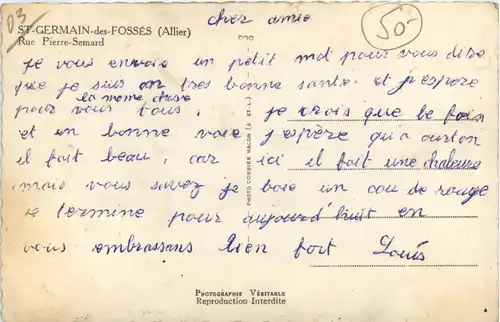 03
cher amie
50-
ST-GERMAIN-des-FOSSÉS (Allier)
Rue Pierre-Semard
je vous envoie un petit mot pour vous dire
que je suis on tres bonne santé et j'espère
la meme chose
pour vous tous. je crois que le foin
et en bonne voie j'espère qu'a ourton
il fait beau, car ici il fait une chaleure
mais vous savez je boie un cou de rouge
je termine pour aujourd'huit en
vous embrassans bien fort Louis
PHOTO COMBIER MACON (S.-ET-L.)
PHOTOGRAPHIE VÉRITABLE
Reproduction Interdite